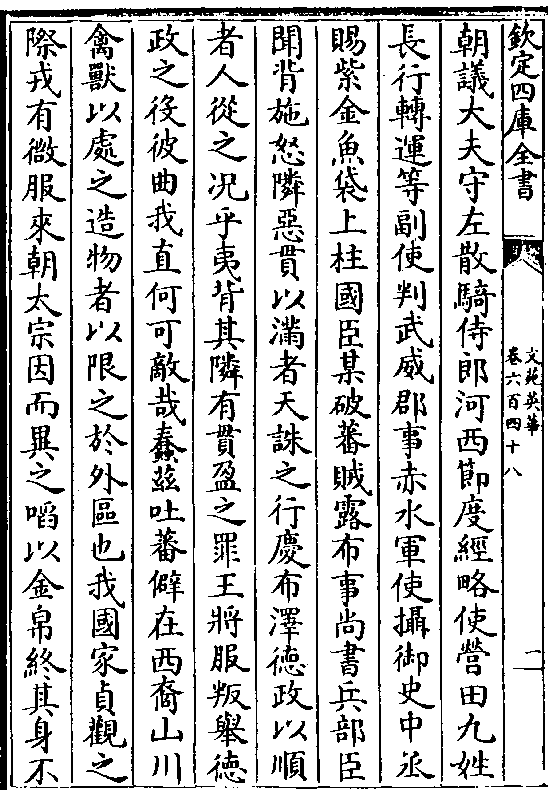 欽定四庫全書
文苑英華
卷六百四十八
二
朝議大夫守左散騎侍郎河西節度經略使營田九姓
長行轉運等副使判武威郡事赤水軍使攝御史中丞
賜紫金魚袋上柱國臣某破蕃賊露布事尚書兵部臣
聞背施怒隣惡貫以滿者天誅之行慶布澤德政以順
者人從之况乎夷背其隣有貫盈之罪王將服叛舉德
政之役彼曲我直何可敵哉蠢茲吐蕃僻在西裔山川
禽獸以處之造物者以限之於外區也我國家貞觀之
際戎有微服來朝太宗因而異之㗖以金帛終其身不